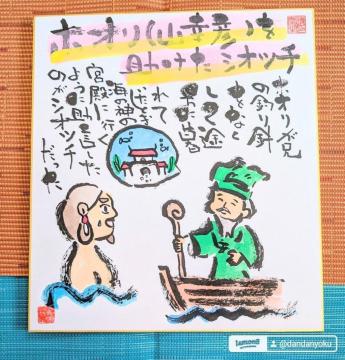 ホオリ(山幸彦)を
助けたシオツチ
ホオリが兄
の釣り針
をなく
して途
れて
海の神の
宮殿に行
よう助言した
のがシオツチ
だった
Lemon8
@dandanyoku